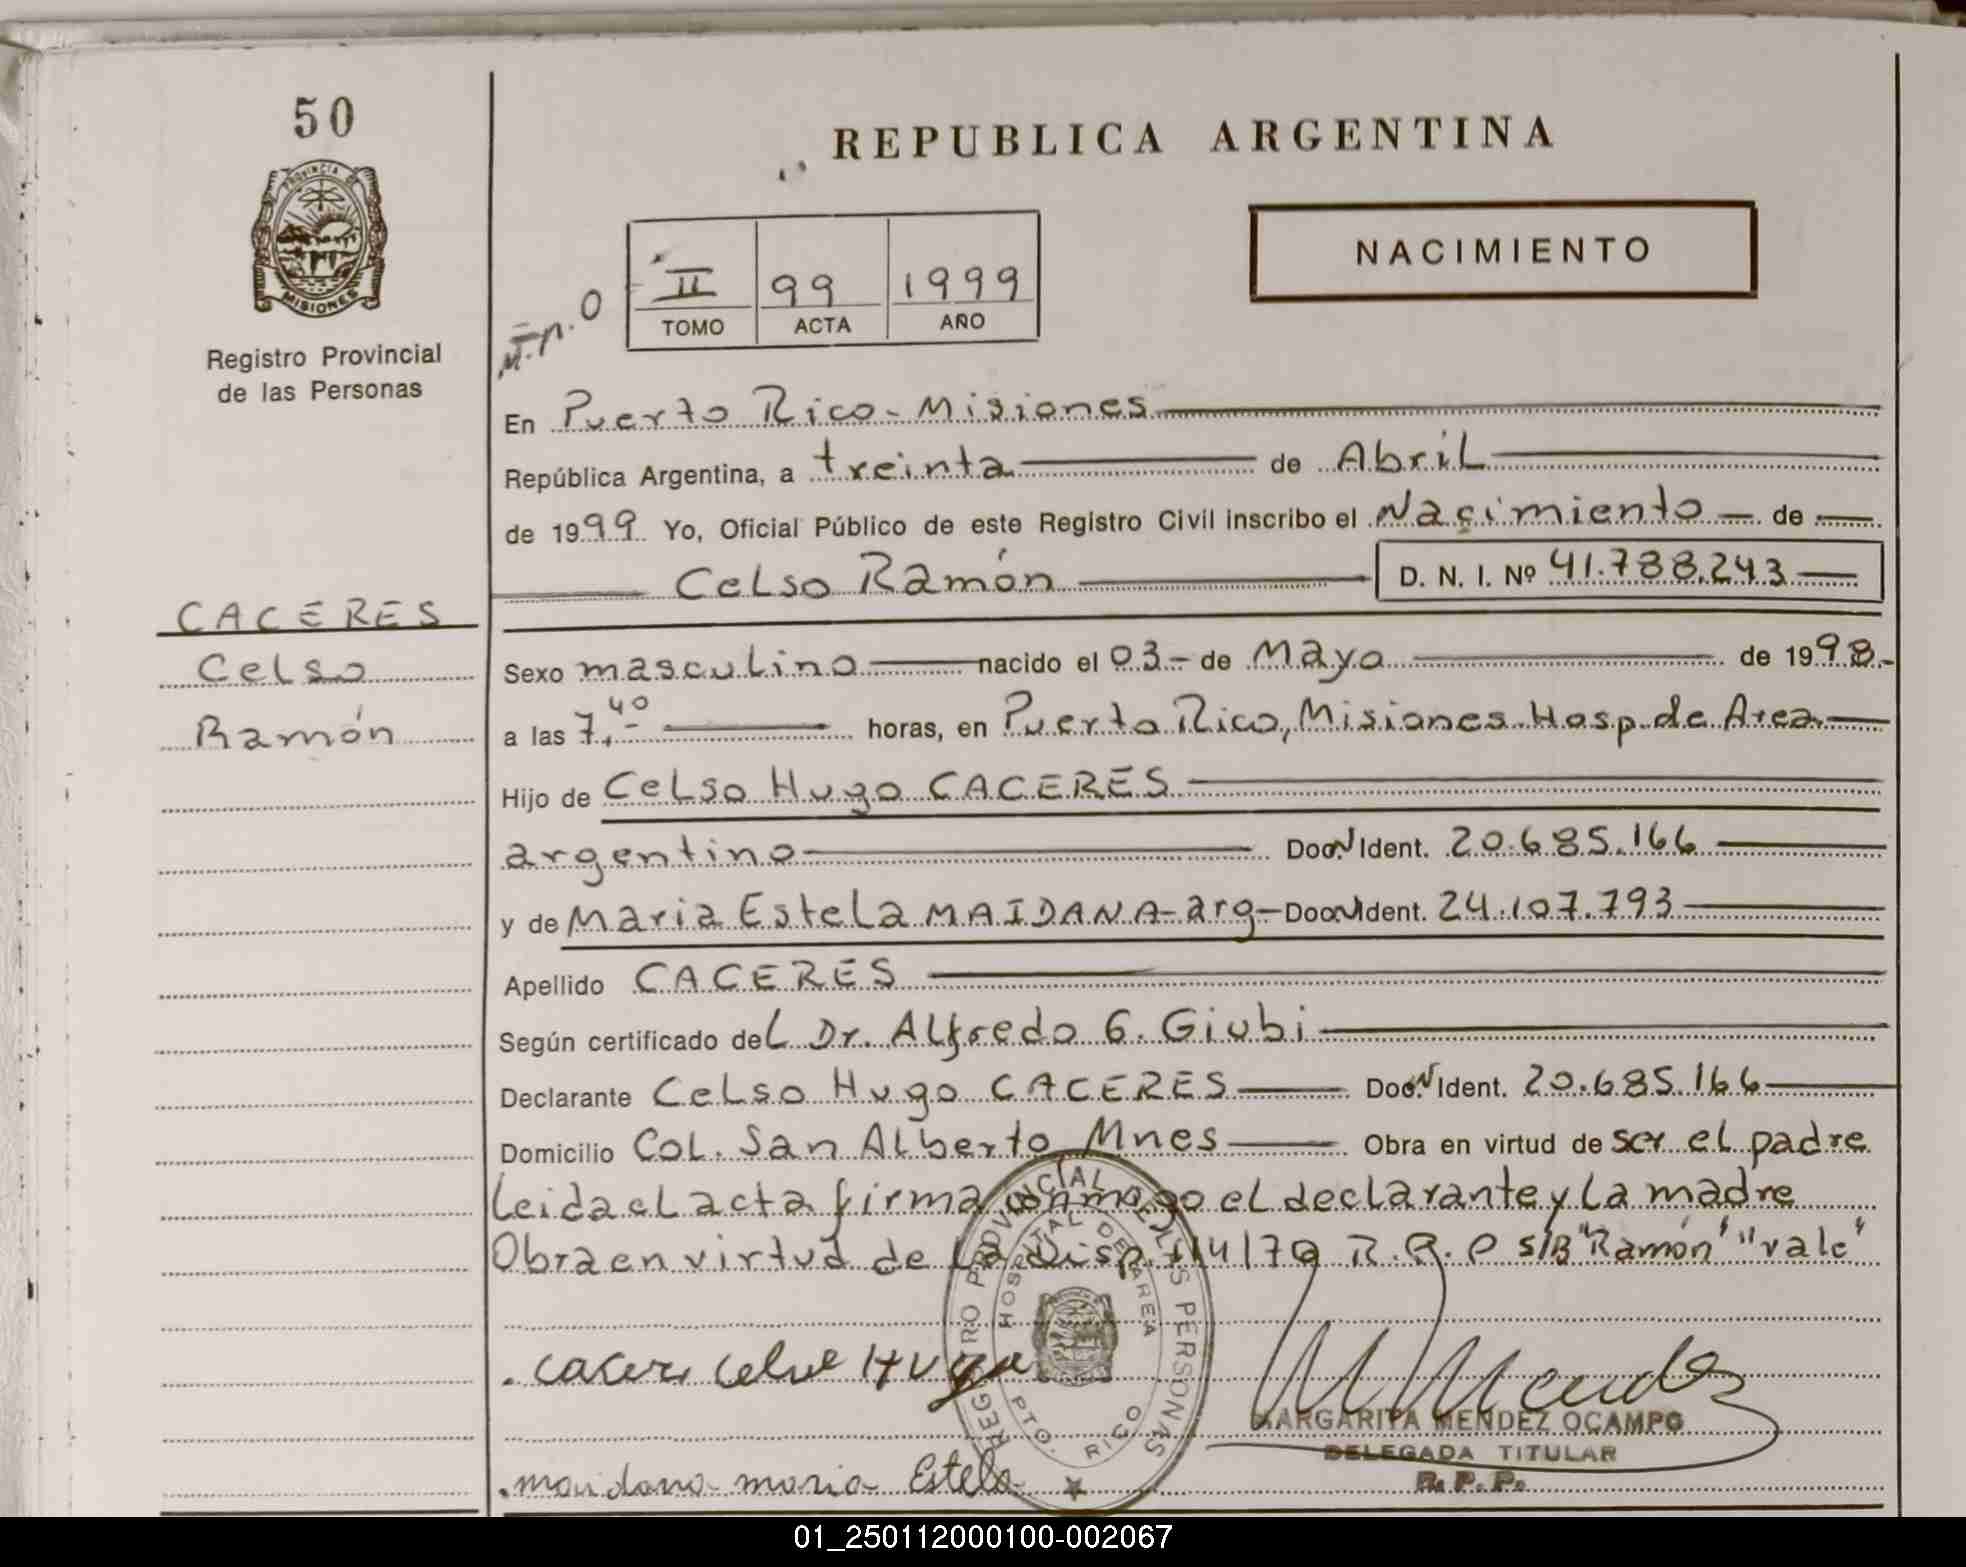 50
REPUBLICA ARGENTINA
PROVINCIA DE
MISIONES
NACIMIENTO
II 99 1999
TOMO ACTA AÑO
Registro Provincial
de las Personas
En Puerto Rico - Misiones
República Argentina, a treinta de Abril
de 1999 Yo, Oficial Público de este Registro Civil inscribo el Nacimiento de
Celso Ramón D. N. I. Nº 41.788.243
CACERES
Celso
Ramón
Sexo masculino nacido el 03 - de Mayo de 1998.-
a las 7,40 horas, en Puerto Rico, Misiones Hosp. de Area
Hijo de Celso Hugo CACERES
argentino Doc. N Ident. 20.685.166
y de Maria Estela MAIDANA - arg - Doc. N Ident. 24.107.793
Apellido CACERES
Según certificado del Dr. Alfredo G. Giubi
Declarante Celso Hugo CACERES Doc. N Ident. 20.685.166
Domicilio Col. San Alberto Mnes Obra en virtud de ser el padre
Leida el acta firma conmigo el declarante y la madre
Obra en virtud de la Disp. 114/79 R.P.P S/B "Ramón" "vale"
REGISTRO PROVINCIAL DE LAS PERSONAS
HOSPITAL DE AREA
PTO. RICO
Caceres Celso Hugo
M Mendez
MARGARITA MENDEZ OCAMPO
DELEGADA TITULAR
R. P. P.
maidana maria Estela
01_250112000100-002067